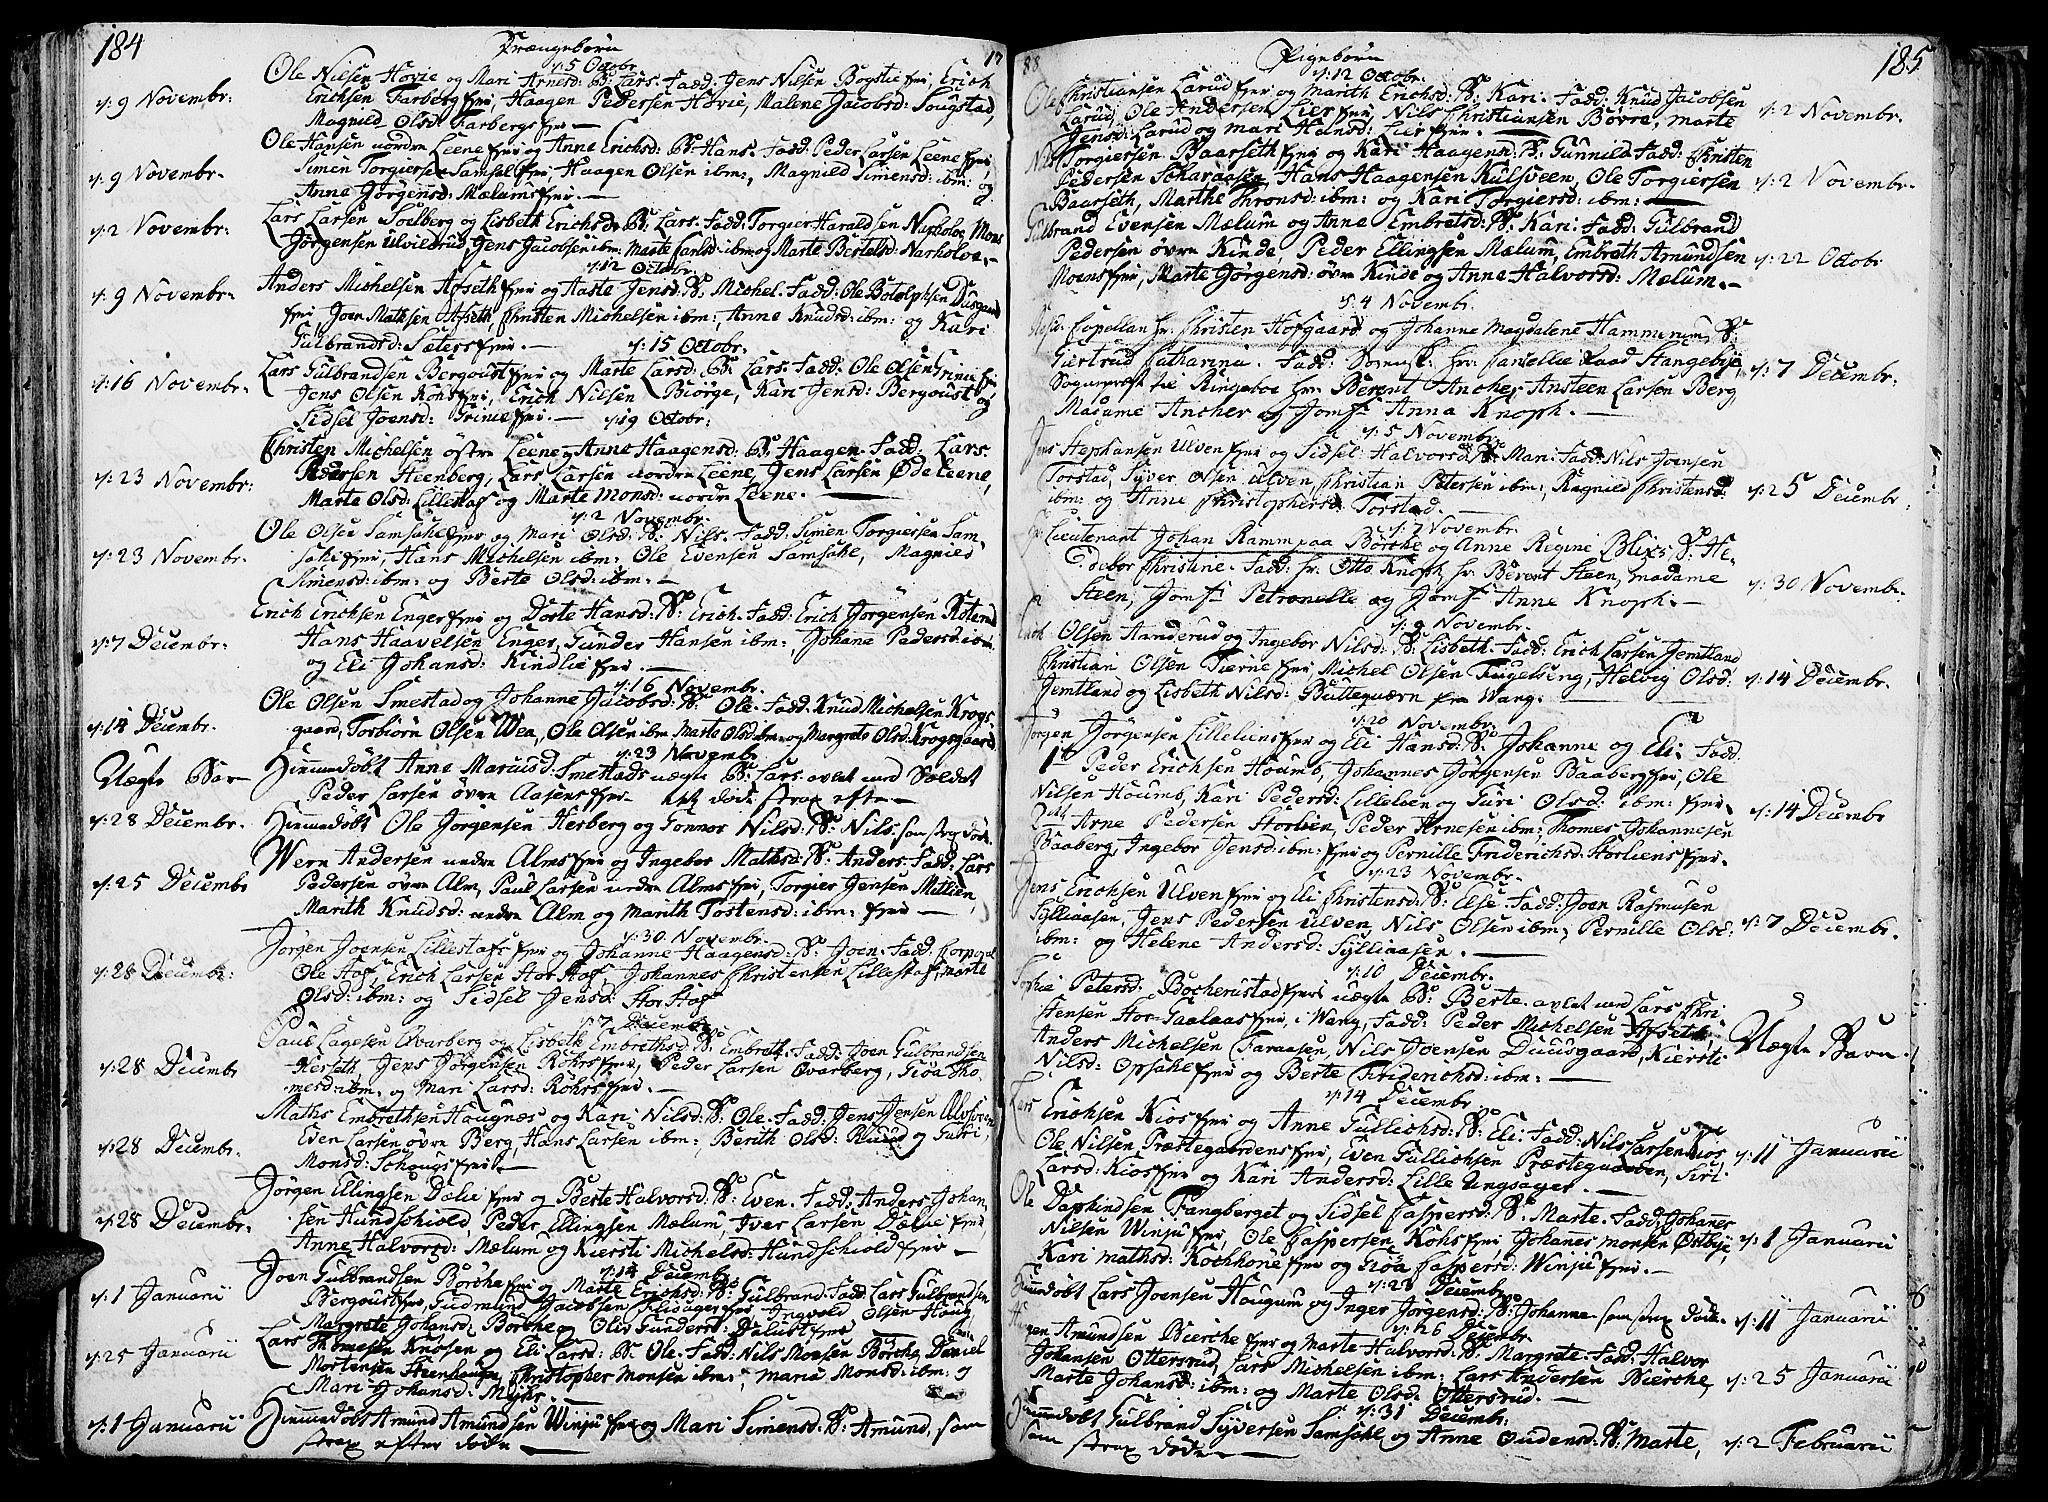 184
Drængebørn
17
d: 5 Octobr
d: 9 Novembr:
Ole Nilsen Hovie og Mari Arnesd: B: Lars. Fadd: Jens Nilsen Bogstie fier, Erich
Erichsen Farberg fier, Haagen Pedersen Hovie, Malene Jacobsd: Sougstad,
Magnild Olsd: Farbergsfier.
d: 9 Novembr.
Ole Hansen nordre Leene fier og Anne Erichsd: B: Hans. Fadd: Peder Larsen Leene fier,
Simen Torgiersen Samsal fier, Haagen Olsen ibm:, Magnild Simensd: ibm: og
Anna Jørgensd: Mælumsfier.
d: 2 Novembr:
Lars Larsen Soelberg og Lisbeth Erichsd: B: Lars. Fadd: Torgier Haraldsen Narholve, Mons
Jørgensen Ulvildrud, Jens Jacobsen ibm: Marte Larsd: ibm: og Marte Bertelsd: Narholve.
d: 12 Octobr
d: 9 Novembr.
Anders Michelsen Afseth fier og Aaste Jensd: B: Michel. Fadd: Ole Botolphsen Dusgaard
fier, Joen Mathsen Afseth, Christen Michelsen ibm:, Anne Knudsd: ibm: og Kari
Gulbrandsd: Sætersfier.
d: 15 Octobr.
d: 16 Novembr.
Lars Gulbrandsen Bergoust fier og Marte Larsd: B: Lars. Fadd: Ole Olsen Grime fier
Jens Olsen Kohsfier, Erich Nilsen Biørge, Kari Jensd: Bergoust og
Sidsel Joensd: Grimefier.
d: 19 Octobr:
d: 23 Novembr:
Christen Michelsen østre Leene og Anne Haagensd: B: Haagen. Fadd: Lars
Pedersen Steenberg, Lars Larsen nordre Leene, Jens Larsen Øde Leene,
Marte Olsd: Lillestaf og Marte Monsd: nordre Leene.
d: 2 Novembr.
d: 23 Novembr.
Ole Olsen Samsahl fier og Mari Olsd: B: Nils. Fadd: Simen Torgiersen Sam-
sahl fier, Hans Michelsen ibm: Ole Evensen Samsahl, Magnild
Simensd: ibm: og Berte Olsd: ibm.
d: 7 Decembr.
Erich Erichsen Enger fier og Dorte Hansd: B: Erich. Fadd: Erich Jørgensen
Hans Haavelsen Enger, Gunder Hansen ibm:, Johane Pedersd: ibm
og Eli Johansd: Kindlie fier.
d: 16 Novembr.
d: 14 Decembr.
Ole Olsen Smestad og Johanne Jacobsd: B: Ole. Fadd: Knud Michelsen Krogs
gaard, Torbiørn Olsen Wea, Ole Olsen ibm. Marte Olsd: ibm: og Margrete Olsd: Krogsgaard
d: 23 Novembr
Uægte Bar
Hiemmedøbt Anne Marcusd: Smestads uægte B: Lars. avlet med Soldat
Peder Larsen øvre Aasensfier. det døde strax efter.
d: 28 Decembr.
Hiemmedøbt Ole Jørgensen Herberg og Gonnor Nilsd: B: Nils, som strax døde.
d: 25 Decembr
Wern Andersen nedre Almsfier og Ingebor Mathsd: B: Anders. Fadd: Lars
Pedersen øvre Alm, Paul Larsen nedre Almsfier, Torgier Jensen Mælien,
Marith Knudsd: nedre Alm og Marith Tostensd: ibm: fier
d: 30 Novembr.
d: 28 Decembr:
Jørgen Joensen Lillestafs fier og Johanne Haagensd: B: Joen. Fadd: Corporal
Ole Staf, Erich Larsen Stor Staf, Johannes Christensen Lillestaf, Marte
Olsd: ibm: og Sidsel Jensd: Stor Staf
d: 7 Decembr
d: 28 Decembr
Paul Lagesen Qvarberg og Lisbeth Embrethsd: B: Embreth. Fadd: Joen Gulbrandsen
Herseth, Jens Jørgensen Røhrsfier, Peder Larsen Qvarberg, Gioa Tho-
mesd: ibm, og Mari Larsd: Røhrsfier.
d: 28 Decembr.
Maths Embrethsen Hougnæs og Kari Nilsd: B: Ole. Fadd: Jens Jensen
Even Larsen øvre Berg, Hans Larsen ibm:, Berith Olsd: og Guri
Monsd: Schougsfier.
d: 28 Decembr.
Jørgen Ellingsen Dælie fier og Berte Halvorsd: B: Even. Fadd: Anders Johan
sen Hundschiold, Peder Ellingsen Mælum, Iver Larsen Dælie fier,
Anne Halvorsd: Mælum og Kiersti Michelsd: Hundschiold fier
d: 14 Decembr
d: 1 Januarii
Joen Gulbrandsen Borche fier og Marte Erichsd: B: Gulbrand. Fadd: Lars Gulbrandsen
Bergoustfier, Gudmund Jacobsen Flidagerfier, Ingvold Olsen Houg
Margrete Johansd: Borche og Oliv Gundersd: Daloustfier
d: 25 Januarii
Lars Thomesen Knosen og Eli Larsd: B: Ole. Fadd: Nils Monsen Borche, Daniel
Mortensen Steenhougen, Christopher Monsen ibm:, Maria Monsd: ibm: og
Mari Johansd: Møhr.
d: 1 Januarii
Hiemmedøbt Amund Amundsen Winju fier og Mari Simensd: B: Amund, som
strax efter døde
88
Pigebørn
185
d: 12 Octobr.
Ole Christiansen Larud fier og Marith Erichsd: B: Kari. Fadd: Knud Jacobsen
Larud, Ole Andersen Lier fier, Nils Christiansen Bøvre, Marte
Jensd: Larud og Mari Hansd: Lier fier.
d: 2 Novembr.
Nils Torgiersen Baarseth fier og Kari Haagensd: B: Gunnild. Fadd: Christen
Pedersen Scharaasen, Hans Haagensen Kulsveen, Ole Torgiersen
Baarseth, Marthe Thronsd: ibm: og Kari Torgiersd: ibm:
d: 2 Novembr.
Gulbrand Evensen Mælum og Anne Embretsd: B: Kari. Fadd: Gulbrand
Pedersen øvre Kinde, Peder Ellingsen Mælum, Embreth Amundsen
Moensfier, Marte Jørgensd: øvre Kinde og Anne Halvorsd: Mælum.
d: 22 Octobr
d: 4 Novembr.
Capellan Hr: Christen Hofgaard og Johanne Magdalene Hammerum, B:
Giertrud Catharina. Fadd: Stangebye,
Sognepræst til Ringeboe Hr: Berent Ancher, Ansteen Larsen Berg,
Madame Ancher og Jomfr Anna Knoph.
d: 7 Decembr:
d: 5 Novembr.
Jens Stephansen Ulven fier og Sidsel Halvorsd: B: Mari. Fadd: Nils Joensen
Torstad, Syver Olsen Ulven, Christian Petersen ibm:, Ragnild Christensd:
ibm: og Anne Christophersd: Torstad.
d: 25 Decembr:
d: 7 Novembr.
Hr: Lieutenant Johan Rammpaa Børche og Anne Regine Blix, B: He-
debor Christine. Fadd: Hr: Otto Knoph, Hr: Berent Steen, Madame
Steen, Jomfr Petronelle og Jomfr Anne Knoph.
d: 30 Novembr.
d: 9 Novembr.
Erich Olsen Aanderud og Ingebor Nilsd: B: Lisbeth. Fadd: Erich Larsen Jemtland
Christian Olsen Tierne fier, Michel Olsen Fugelseng, Helvig Olsd:
Jemtland og Lisbeth Nilsd: Butteqværn fra Wang.
d: 14 Decembr.
d: 20 Novembr.
Jørgen Jørgensen Lilleliensfier og Eli Hansd: B: Johanne og Eli. Fadd.
1st Peder Erichsen Houmb, Johannes Jørgensen Baaberg fier, Ole
Nilsen Houmb, Kari Pedersd: Lillelien og Turi Olsd: ibm: fier.
2det Arne Pedersen Storlien, Peder Arnesen ibm:, Thomes Johannesen
Baaberg, Ingebor Jensd: ibm: fier og Pernille Friderichsd: Storliensfier.
d: 14 Decembr
d: 23 Novembr.
Jens Erichsen Ulven fier og Eli Christensd: B: Else. Fadd: Joen Rasmusen
Sylliaasen, Jens Pedersen Ulven, Nils Olsen ibm:, Pernille Olsd:
ibm: og Helene Andersd: Sylliaasen.
d: 7 Decembr.
d: 10 Decembr.
Sophie Petersd: Bocherustadfier uægte B: Berte. avlet med Lars Chri
stensen Stor-Saalaas fier, i Wang, Fadd: Peder Michelsen Afseth,
Anders Michelsen Faraasen, Nils Joensen Duusgaard, Kiersti
Nilsd: Opsahl fier og Berte Friderichsd: ibm:
Uægte Barn
d: 14 Decembr
Lars Erichsen Kios fier og Anne Gullichsd: B: Eli. Fadd: Nils Larsen Kios
Ole Nilsen Præstegaardensfier, Even Gullichsen Præstegaarden, Siri
Larsd: Kiosfier og Kari Andersd: Lille Ungsager.
d: 11 Januarii
Ole Daphindsen Fangberget og Sidsel Caspersd: B: Marte. Fadd: Johannes
Nilsen Winju fier, Ole Caspersen Kohsfier, Johanes Monsen Østbye,
Kari Mathsd: Kochhone fier og Gioa Caspersd: Winju fier.
d: 1 Januarii
d: 23 Decembr
Hiemmedøbt Lars Joensen Hougum og Inger Jørgensd: B: Johanne som strax døde.
d: 11 Januarii
d: 26 Decembr
Haagen Amundsen Bierche fier og Marte Halvorsd: B: Margrete. Fadd: Halvor
Johansen Ottersrud, Lars Michelsen ibm: Lars Andersen Bierche,
Marte Johansd: ibm: og Marte Olsd: Ottersrud.
d: 25 Januarii
d: 31 Decembr:
Hiemmedøbt Gulbrand Syversen Samsahl og Anne Oudensd: B: Marte,
som strax døde.
d: 2 Februarii